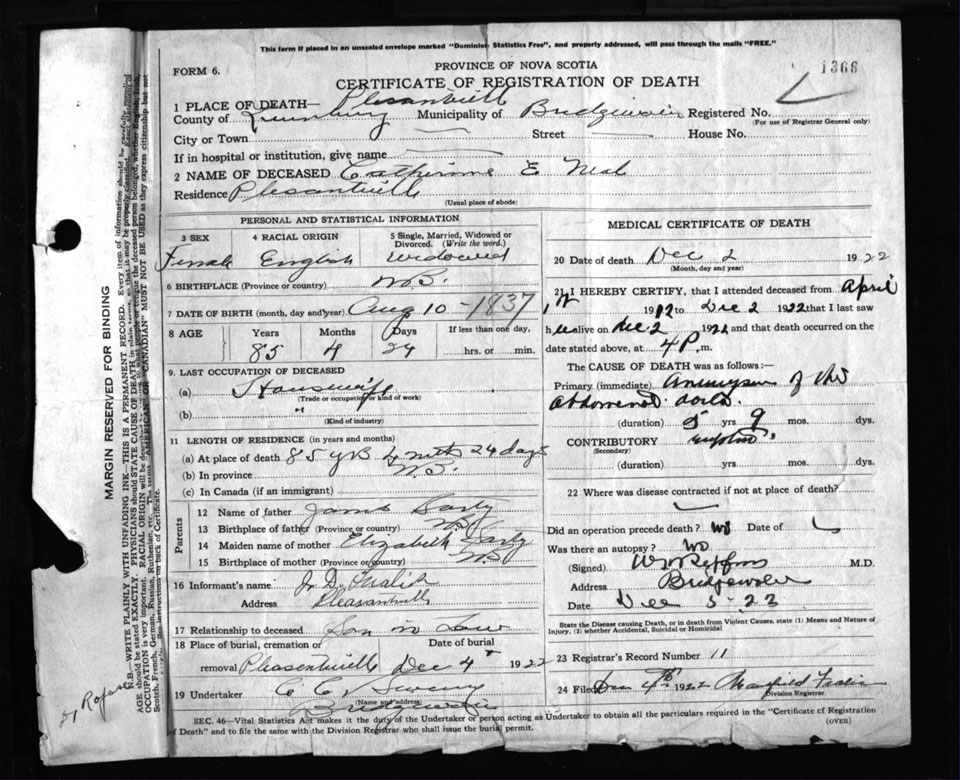 This form if placed in an unsealed envelope marked "Dominion Statistics Free", and properly addressed, will pass through the mails "FREE."
FORM 6.
PROVINCE OF NOVA SCOTIA
1366
CERTIFICATE OF REGISTRATION OF DEATH
1 PLACE OF DEATH— Plesantville
County of Lunenburg Municipality of Registered No.
(For use of Registrar General only)
City or Town Street House No.
If in hospital or institution, give name
2 NAME OF DECEASED Catherine E
Residence Plesantville
(Usual place of abode)
PERSONAL AND STATISTICAL INFORMATION
3 SEX 4 RACIAL ORIGIN 5 Single, Married, Widowed or Divorced. (Write the word.)
Female English Widowed
6 BIRTHPLACE (Province or country) N.S.
7 DATE OF BIRTH (month, day and year) Aug 10 - 1837
8 AGE Years Months Days If less than one day,
85 4 24 hrs. or min.
9. LAST OCCUPATION OF DECEASED
(a) Housewife
(Trade or occupation or kind of work)
(b) "
(Kind of industry)
11 LENGTH OF RESIDENCE (in years and months)
(a) At place of death 85 yrs 4 mths 24 days
(b) In province N.S.
(c) In Canada (if an immigrant)
Parents
12 Name of father Sarty
13 Birthplace of father (Province or country) N.S.
14 Maiden name of mother Elizabeth Sarty
15 Birthplace of mother (Province or country) N.S
16 Informant's name
Address Pleasantville
17 Relationship to deceased Son in Law
18 Place of burial, cremation or Date of burial
removal Pleasentville Dec 4 1922
19 Undertaker C C
(Name and address)
MEDICAL CERTIFICATE OF DEATH
20 Date of death Dec 2 1922
(Month, day and year)
21 I HEREBY CERTIFY, that I attended deceased from April
1st 1912 to Dec 2 1922 that I last saw
h alive on Dec 2 1922 and that death occurred on the
date stated above, at 4 P.m.
The CAUSE OF DEATH was as follows:—
Primary (immediate) Aneurysm of the
abdominal aorta.
(duration) yrs 9 mos. dys.
CONTRIBUTORY
(Secondary)
(duration) yrs mos. dys.
22 Where was disease contracted if not at place of death?
Did an operation precede death? no Date of
Was there an autopsy? no
(Signed) M.D.
Address Bridgewater
Date Dec 5-22
State the Disease causing Death, or in death from Violent Causes, state (1) Means and Nature of
Injury, (2) whether Accidental, Suicidal or Homicidal
23 Registrar's Record Number 11
24 Filed 4th 1922
Division Registrar.
SEC. 46—Vital Statistics Act makes it the duty of the Undertaker or person acting as Undertaker to obtain all the particulars required in the "Certificate of Registration
of Death" and to file the same with the Division Registrar who shall issue the burial permit.
(OVER)
MARGIN RESERVED FOR BINDING
N.B.—WRITE PLAINLY WITH UNFADING INK—THIS IS A PERMANENT RECORD. Every item of information should be carefully